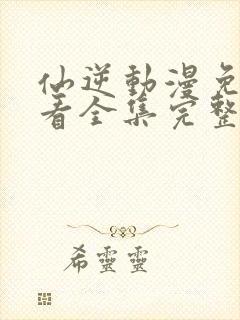 仙逆動漫免
看全集完整
希靈靈